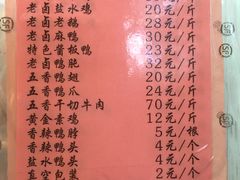 老卤盐水鸡 20元/斤
老卤老鹅 28元/斤
老卤麻鸭 23元/斤
特色酱板鸭 30元/斤
老卤鸭肫 32元/斤
五香鸭翅 20元/斤
五香鸭爪 24元/斤
五香干切牛肉 70元/斤
黄金素鸡 12元/斤
香辣鸭脖 5元/根
香辣鸭头 4元/个
盐水鸭头 4元/个
真空包装 2元/个